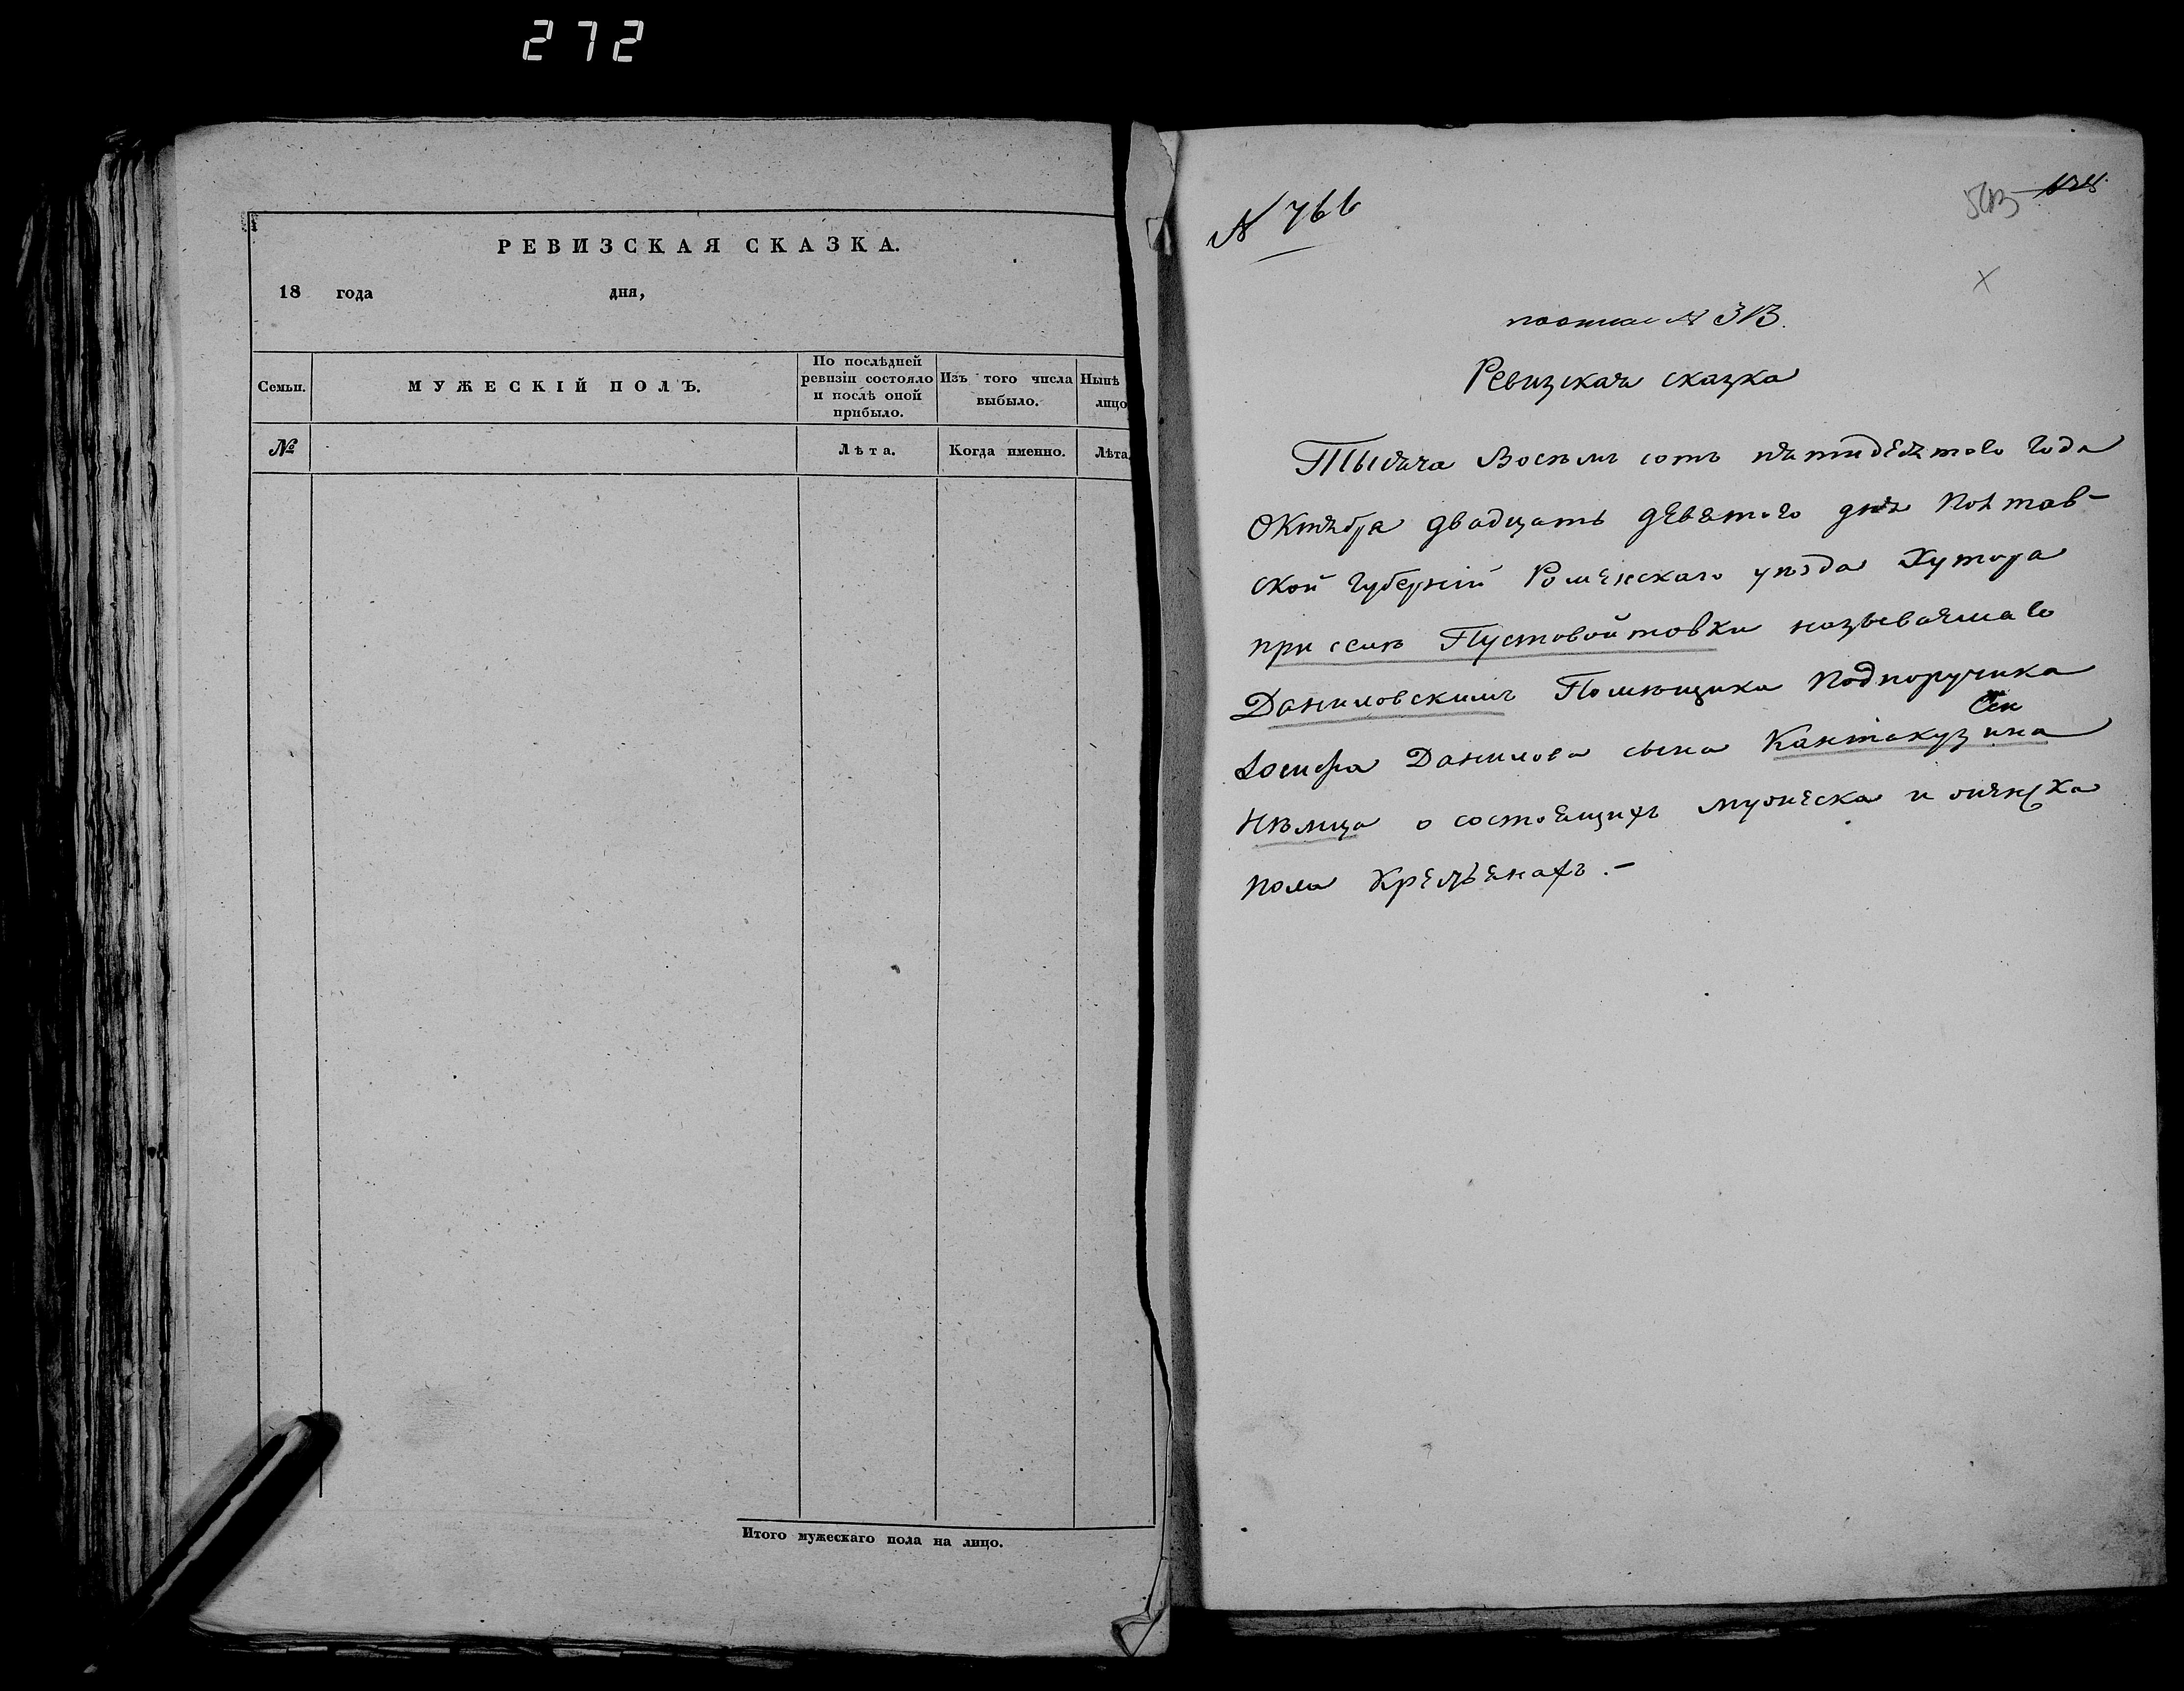 272
РЕВИЗСКАЯ СКАЗКА.
18 года дня,
Семьи.
МУЖЕСКІЙ ПОЛЪ.
По послѣдней
ревизіи состояло
и послѣ оной
прибыло.
Изъ того числа
выбыло.
Нынѣ
лицо
№
Лѣта.
Когда именно.
Лѣта.
Итого мужескаго пола на лицо.
N 766
N 313.
Ревизская сказка
Тысяча Восемъ сотъ пятидесятого Года
Октября двадцать девятого дня Полтав-
ской Губерніи Роменскаго уѣзда Хутора
при селѣ Пустовойтовки называемаго
Даниловскимъ Помѣщика Подпоручика
Іосифа Данилова сына Кантакузина
Нѣмца о состоящихъ мужеска и женска
пола Крестьянахъ. –